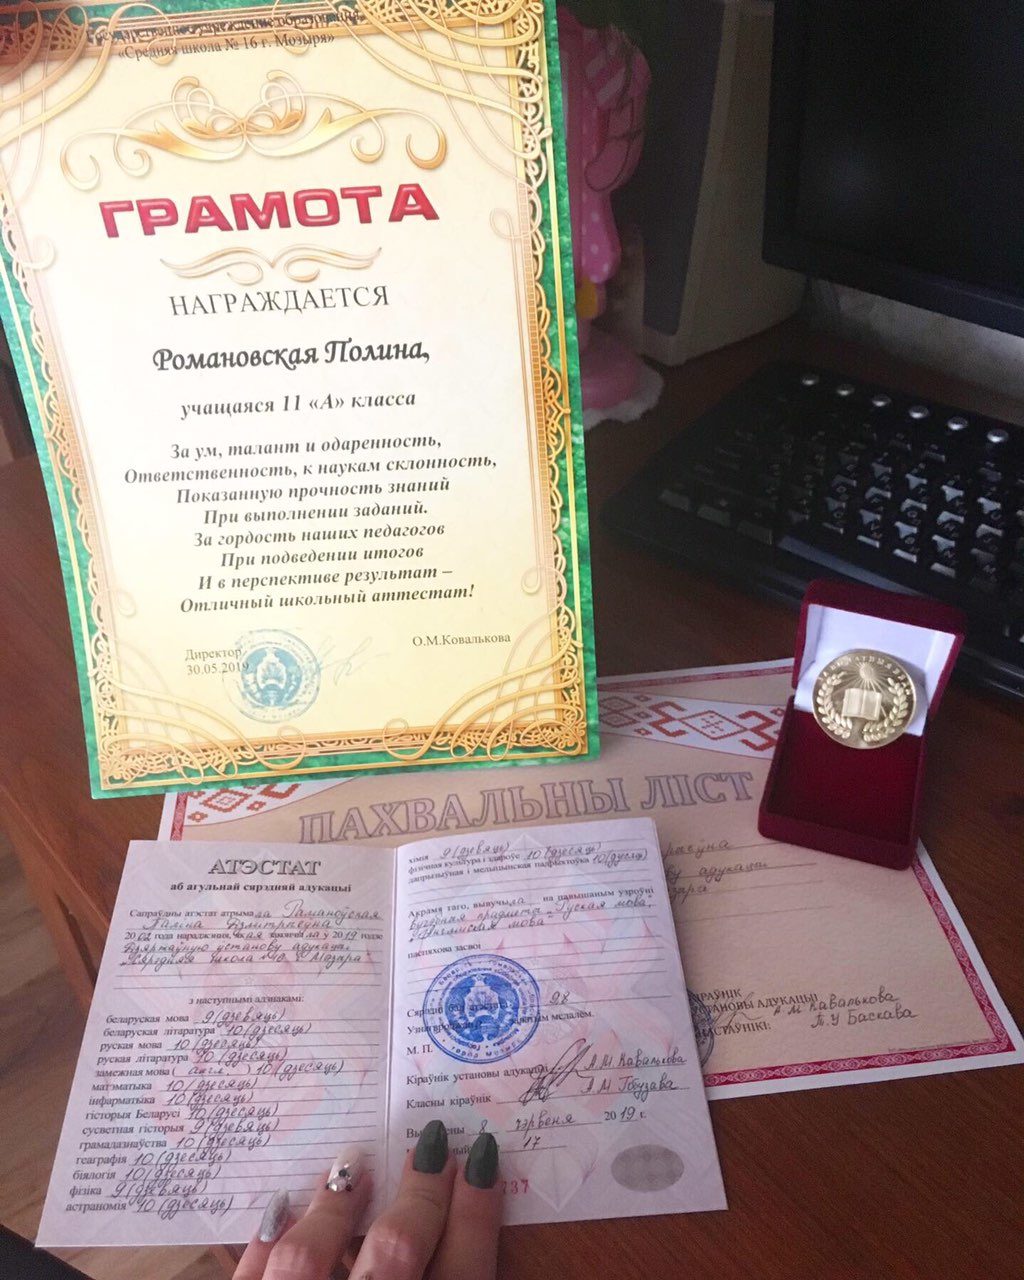 Государственное учреждение образования
«Средняя школа № 16 г. Мозыря»
ГРАМОТА
НАГРАЖДАЕТСЯ
Романовская Полина,
учащаяся 11 «А» класса
За ум, талант и одаренность,
Ответственность, к наукам склонность,
Показанную прочность знаний
При выполнении заданий.
За гордость наших педагогов
При подведении итогов
И в перспективе результат –
Отличный школьный аттестат!
Директор
О.М.Ковалькова
30.05.2019
ПАХВАЛЬНЫ ЛІСТ
адукацыі
КІРАЎНІК
УСТАНОВЫ АДУКАЦЫІ
А М Кавалькова
Т.У Баскава
АТЭСТАТ
аб агульнай сярэдняй адукацыі
Сапраўдны атэстат атрымала Раманоўская
Паліна Дзмітрыеўна
2002 года нараджэння, якая закончыла ў 2019 годзе
Дзяржаўную установу адукацыі
"Сярэдняя школа №16 г. Мазыра"
з наступнымі адзнакамі:
беларуская мова 9 (дзевяць)
беларуская літаратура 10 (дзесяць)
руская мова 10 (дзесяць)
руская літаратура 10 (дзесяць)
замежная мова ( англ. ) 10 (дзесяць)
матэматыка 10 (дзесяць)
інфарматыка 10 (дзесяць)
гісторыя Беларусі 10 (дзесяць)
сусветная гісторыя 9 (дзевяць)
грамадазнаўства 10 (дзесяць)
геаграфія 10 (дзесяць)
біялогія 10 (дзесяць)
фізіка 9 (дзевяць)
астраномія 10 (дзесяць)
хімія 9 (дзевяць)
фізічная культура і здароўе 10 (дзесяць)
дапрызыўная і медыцынская падрыхтоўка 10 (дзесяць)
Акрамя таго, вывучыла на павышаным узроўні
вучэбныя прадметы "Руская мова",
"Англійская мова"
паспяхова засвоі
Сярэдні бал атэстата 9,8
Узнагароджана залатым медалём.
М. П.
Кіраўнік установы адукацыі А М Кавалькова
Класны кіраўнік А М Гбузава
Выдадзены 8 чэрвеня 2019 г.
17
737